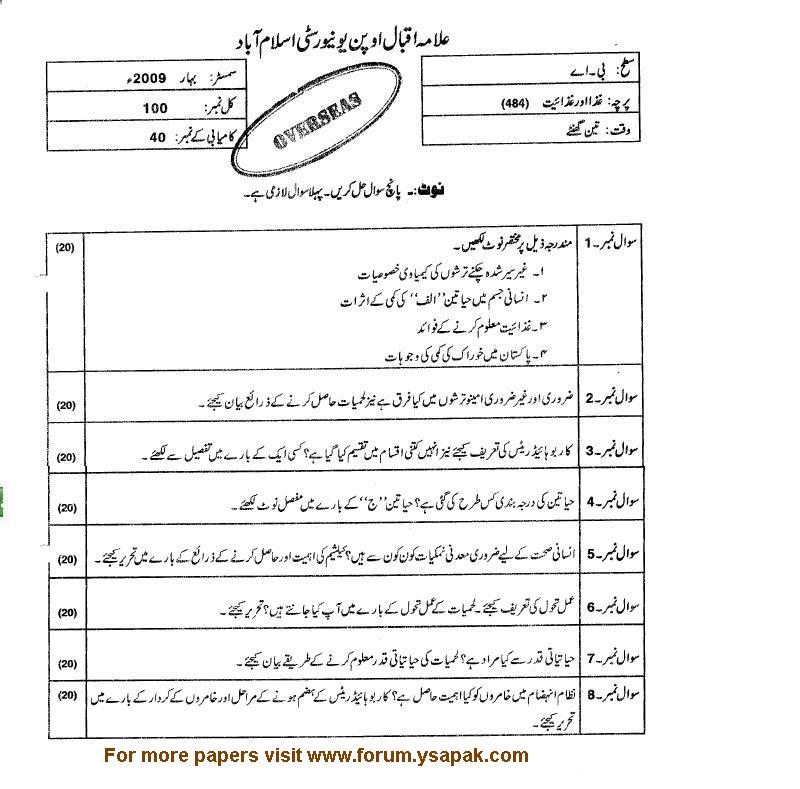 علامہ اقبال اوپن یونیورسٹی اسلام آباد
سطح: بی۔اے
سمسٹر: بہار 2009ء
پرچہ: غذا اور غذائیت (484)
کل نمبر: 100
وقت: تین گھنٹے
کامیابی کے نمبر: 40
OVERSEAS
نوٹ:۔ پانچ سوال حل کریں۔ پہلا سوال لازمی ہے۔
سوال نمبر۔1 مندرجہ ذیل پر مختصر نوٹ لکھیں۔ (20)
۱۔ غیر سیر شدہ چکنے ترشوں کی کیمیاوی خصوصیات
۲۔ انسانی جسم میں حیاتین ”الف“ کی کمی کے اثرات
۳۔ غذائیت معلوم کرنے کے فوائد
۴۔ پاکستان میں خوراک کی کمی کی وجوہات
سوال نمبر۔2 ضروری اور غیر ضروری امینو ترشوں میں کیا فرق ہے نیز لحمیات حاصل کرنے کے ذرائع بیان کیجئے۔ (20)
سوال نمبر۔3 کاربوہائیڈریٹس کی تعریف کیجئے نیز انہیں کتنی اقسام میں تقسیم کیا گیا ہے؟ کسی ایک کے بارے میں تفصیل سے لکھئے۔ (20)
سوال نمبر۔4 حیاتین کی درجہ بندی کس طرح کی گئی ہے؟ حیاتین ”ج“ کے بارے میں مفصل نوٹ لکھئے۔ (20)
سوال نمبر۔5 انسانی صحت کے لیے ضروری معدنی نمکیات کون کون سے ہیں؟ کیلشیم کی اہمیت اور حاصل کرنے کے ذرائع کے بارے میں تحریر کیجئے۔ (20)
سوال نمبر۔6 عمل تحول کی تعریف کیجئے۔ لحمیات کے عمل تحول کے بارے میں آپ کیا جانتے ہیں؟ تحریر کیجئے۔ (20)
سوال نمبر۔7 حیاتیاتی قدر سے کیا مراد ہے؟ لحمیات کی حیاتیاتی قدر معلوم کرنے کے طریقے بیان کیجئے۔ (20)
سوال نمبر۔8 نظام انہضام میں خامروں کو کیا اہمیت حاصل ہے؟ کاربوہائیڈریٹس کے ہضم ہونے کے مراحل اور خامروں کے کردار کے بارے میں (20)
تحریر کیجئے۔
For more papers visit www.forum.ysapak.com